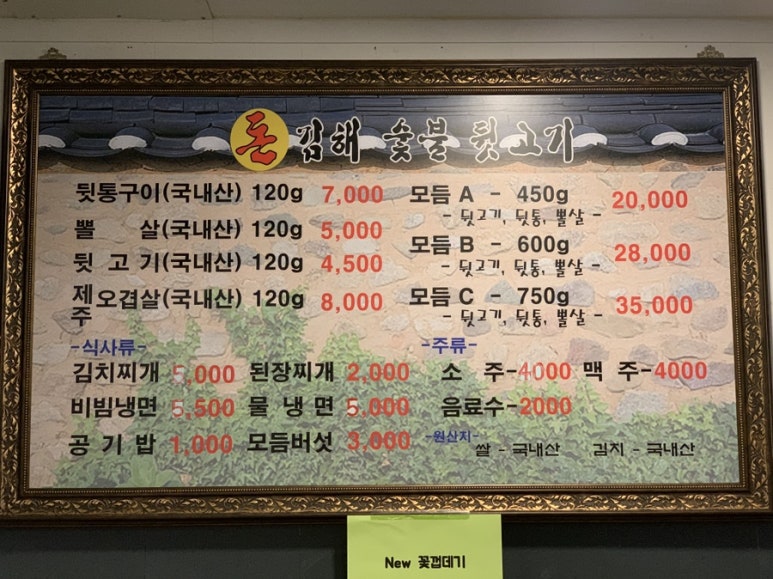 돈 김해 숯불 뒷고기
뒷통구이(국내산) 120g 7,000
뽈 살(국내산) 120g 5,000
뒷 고 기(국내산) 120g 4,500
제주 오겹살(국내산) 120g 8,000
모듬 A - 450g 20,000
- 뒷고기, 뒷통, 뽈살 -
모듬 B - 600g 28,000
- 뒷고기, 뒷통, 뽈살 -
모듬 C - 750g 35,000
- 뒷고기, 뒷통, 뽈살 -
-식사류-
김치찌개 5,000 된장찌개 2,000
비빔냉면 5,500 물 냉 면 5,000
공 기 밥 1,000 모듬버섯 3,000
-주류-
소 주-4000 맥 주-4000
음료수-2000
-원산지- 쌀 - 국내산 김치 - 국내산
New 꽃껍데기